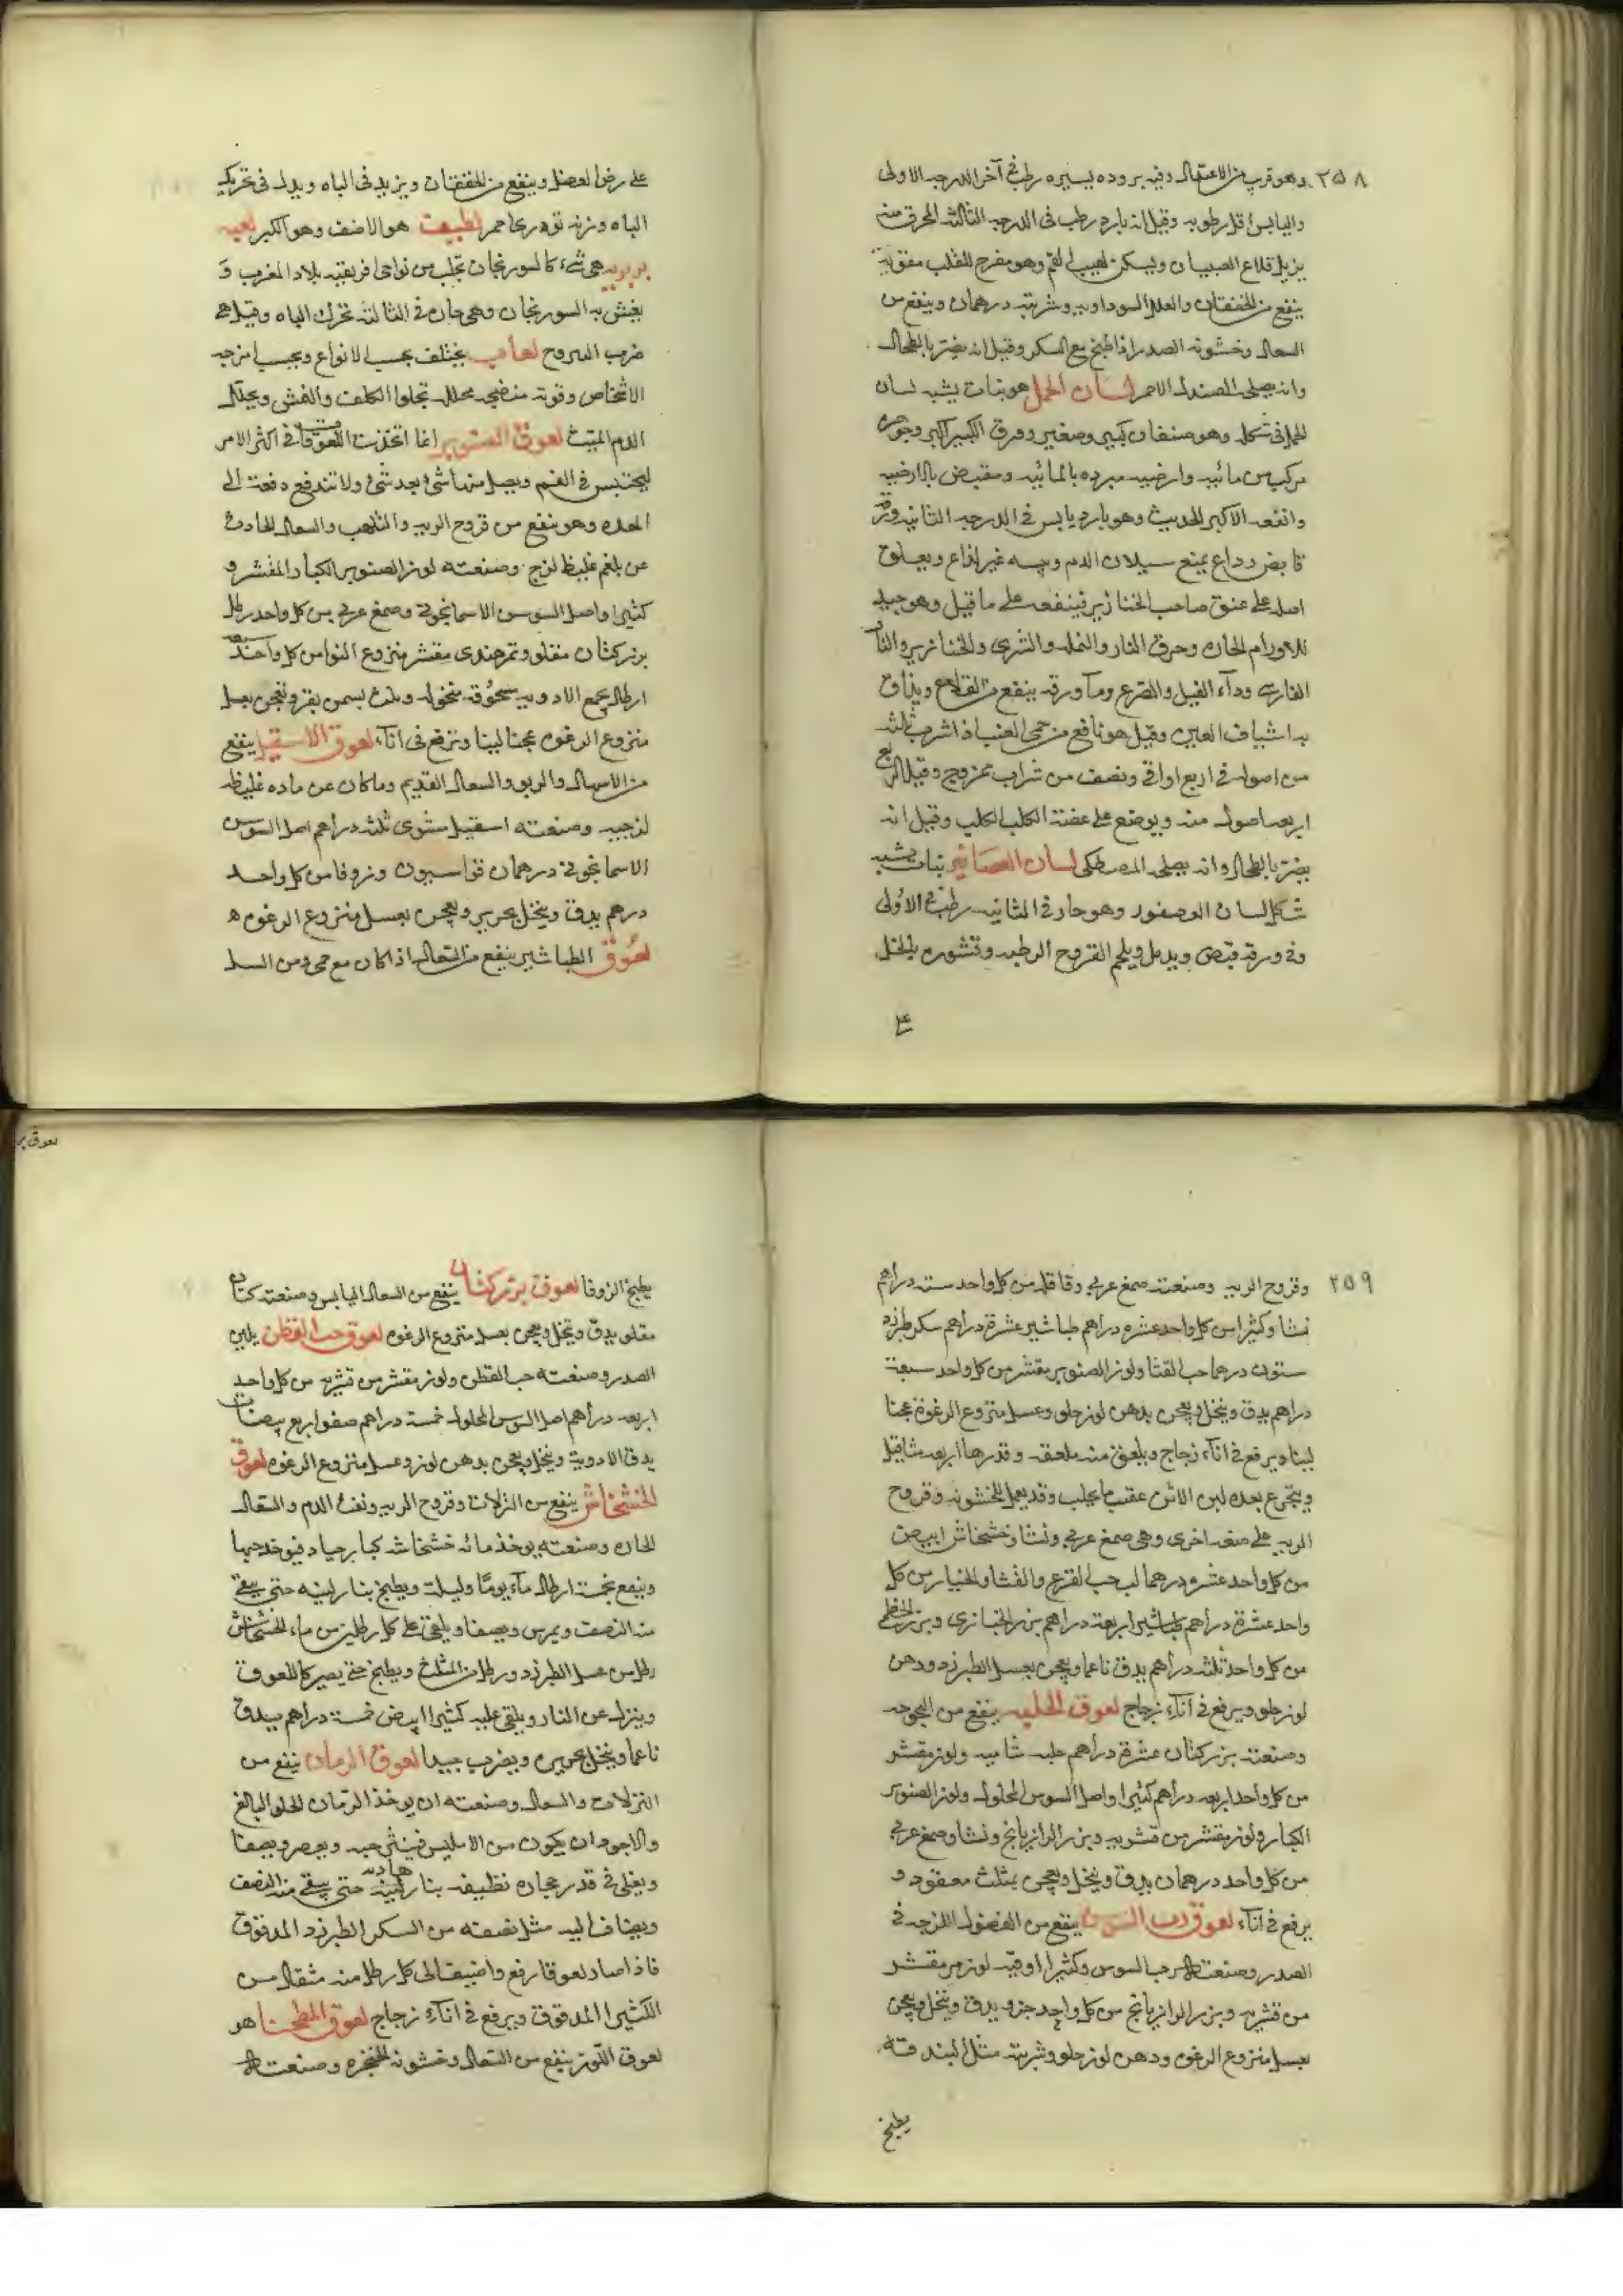 ٢٥٨
وهو قريب من الاعتدال وفيه بروده يسيره رطب فى آخر الدرجه الاولى
واليابس اقل رطوبه وقيل انه بارد رطب فى الدرجه الثالثه المحرق منه
يزيل قلاع الصبيان ويسكن لهيب الفم وهو مفرح للقلب مقو له
ينفع من الخفقان والعلل السوداويه وشربته درهمان وينفع من
السعال وخشونه الصدر اذا طبخ مع السكر وقيل انه يضر بالطحال
وانه يصلحه الصندل الاحمر لسان الحمل هو نبات يشبه لسان
الحمل فى شكله وهو صنفان كبير وصغير وورق الكبير اكبر وجوهره
مركب من مائيه وارضيه مبرده بالمائيه ومقبض بالارضيه
وانفعه الاكبر الحديث وهو بارد يابس فى الدرجه الثانيه وورقه
قابض رداع يمنع سيلان الدم ويبسه غير لذاع ويعلق
اصله على عنق صاحب الخنازير فينفعه على ما قيل وهو جيد
للاورام الحاره وحرق النار والنمله والشرى والخنازير والنار
الفارسى ودآء الفيل والصرع ومآ ورقه ينفع من القلاع ويذاف
به اشياف العين وقيل هو نافع من حمى الغب اذا شرب ثلثه
من اصوله فى اربع اواقى ونصف من شراب ممزوج وقيل للربع
اربعه اصول منه ويوضع على عضة الكلب الكلب وقيل انه
يضر بالطحال وانه يصلحه المصطكى لسان العصافير نبات يشبه
شكل لسان العصفور وهو حار فى الثانيه رطب فى الاولى
وفى ورقه قبض ويدمل ويلحم القروح الرطبه وقشوره بالخل
على رض العصل وينفع من الخفقان ويزيد فى الباه وبدله فى تحريك
الباه وزنه تودرى احمر لطيبت هو الاضف وهو الكبر لعبه
بربريه هى شىء كالسورنجان تجلب من نواحى افريقيه بلاد المغرب و
يغش به السورنجان وهى حاره فى الثالثه تحرك الباه وقيل هى
ضرب السروح لعاب يختلف بحسب الانواع وبحسب امزجه
الاشخاص وقوته منضجه محلله تجلوا الكلف والنمش ويحلل
الدم الميت لعوق الصنوبر انما اتخذت اللعوقات فى اكثر الامر
ليحتبس فى الفم ويصل منها شئ بعد شئ ولا تندفع دفعة الى
المعده وهو ينفع من قروح الريه والتلهب والسعال الحادث
عن بلغم غليظ لزج وصنعته لوز الصنوبر الكبار المقشر و
كثيرا واصل السوس الاسمانجونى وصمغ عربى من كل واحد رطل
بزر كتان مقلو وتمر هندى مقشر منزوع النوا من كل واحد سبعه
ارطال يجمع الادويه مسحوقه منخوله وتلت بسمن بقر وتعجن بعسل
منزوع الرغوه عجنا لينا وترفع فى انآء لعوق الاسقيل ينفع
من الاسهال والربو والسعال القديم وما كان عن ماده غليظه
لزجه وصنعته اسقيل مشوى ثلثه دراهم اصل السوس
الاسمانجونى درهمان فراسيون وزوفا من كل واحد
درهم يدق وينخل بحرير ويعجن بعسل منزوع الرغوه
لعوق الطباشير ينفع من السعال اذا كان مع حمى ومن السل
٢٥٩
وقروح الريه وصنعته صمغ عربى وقاقله من كل واحد سته دراهم
نشا وكثيرا من كل واحد عشره دراهم طباشير عشرة دراهم سكر طبرزد
ستون درهما حب القثا ولوز الصنوبر مقشر من كل واحد سبعة
دراهم يدق وينخل ويعجن بدهن لوز حلو وعسل منزوع الرغوة عجنا
لينا ويرفع فى انآء زجاج ويلعق منه ملعقه وقدرها اربعه مثاقيل
ويتجرع بعده لبن الاتن عقيب ما يحلب وقد يعمل لخشونه وقروح
الريه على صفه اخرى وهى صمغ عربى ونشا وخشخاش ابيض
من كل واحد عشرو درهما لب حب القرع والقثا والخيار من كل
واحد عشرة دراهم طباشير اربعة دراهم بزر الخبازى وبزر الخطمى
من كل واحد ثلثه دراهم يدق ناعما ويعجن بعسل الطبرزد ودهن
لوز حلو ويرفع فى انآء زجاج لعوق الحلبه ينفع من البحوحه
وصنعته بزر كتان عشرة دراهم حلبه شاميه ولوز مقشر
من كل واحد اربعه دراهم كثيرا واصل السوس المحلول ولوز الصنوبر
الكبار ولوز مقشر من قشريه وبزر الرازيانج ونشا وصمغ عربى
من كل واحد درهمان يدق وينخل ويعجن بمثلث معقود و
يرفع فى انآء لعوق رب السوس ينفع من الفضول اللزجه فى
الصدر وصنعته رب السوس وكثيرا اوقيه لوز مر مقشر
من قشريه وبزر الرازيانج من كل واحد جزو يدق وينخل ويعجن
بعسل منزوع الرغوه ودهن لوز حلو وشربته مثل البندقة
يطبخ
لعوق بز
يطبخ الزوفا لعوق بزركتان ينفع من السعال اليابس وصنعته كتان
مقلو يدق وينخل ويعجن بعسل منزوع الرغوه لعوق حب القطن يلين
الصدر وصنعته حب القطن ولوز مقشر من قشريه من كل واحد
اربعه دراهم اصل السوس المحلول خمسة دراهم صفو اربع بيضات
يدق الادوية وينخل ويعجن بدهن لوز وعسل منزوع الرغوه لعوق
الخشخاش ينفع من النزلات وقروح الريه ونفث الدم والسعال
الحاره وصنعته يوخذ مائه خشخاشه كبار جياد فيوخذ حبها
وينقع بخمسة ارطال مآء يوما وليلة ويطبخ بنار لينه حتى يبقى
منه النصف ويمرس ويصفا ويلقى على كل رطلين من ماء الخشخاش
رطل من عسل الطبرزد ورطل من المثلث ويطبخ حتى يصير كاللعوق
وينزل عن النار ويلقى عليه كثيرا ابيض خمسة دراهم يدق
ناعما وينخل بحرير ويضرب جيدا لعوق الرمان ينفع من
النزلات والسعال وصنعته ان يوخذ الرمان الحلو البالغ
والاجود ان يكون من الامليس فينثر حبه ويعصر ويصفا
ويغلى فى قدر حجاره نظيفه بنار لينه هاديه حتى يبقى منه النصف
ويضاف اليه مثل نصفه من السكر الطبرزد المدقوق
فاذا صار لعوقا رفع واضيف الى كل رطل منه مثقال من
الكثيرا المدقوق ويرفع فى انآء زجاج لعوق المطحنا هو
لعوق اللوز ينفع من السعال وخشونه الحنجره وصنعته